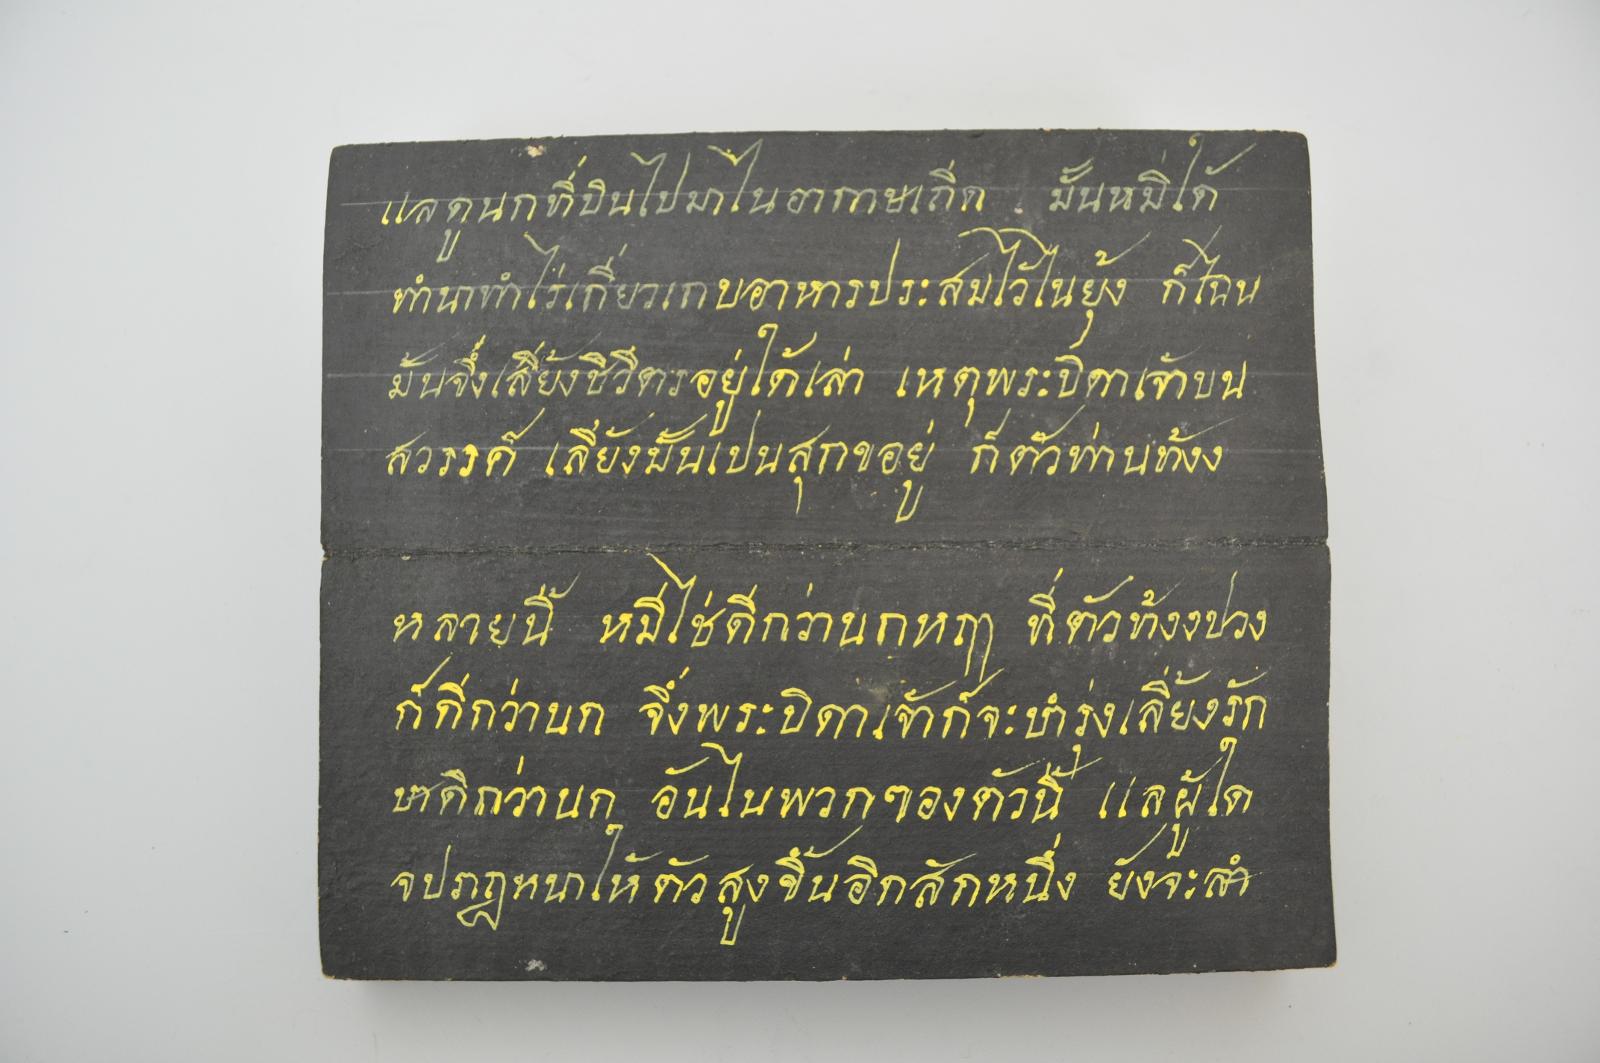 แลดูนกที่บินไปมาไนอากาษเถีด มันหมีได้
ทำนาทำไร่เกี่ยวเกบอาหารประสมไว้ไนยุ้ง ก็ไฉน
มันจึ่งเลี้ยงชีวีตรอยู่ได้เล่า เหตุพระบิดาเจ้าบน
สวรรค์ เลี้ยงมันเปนสุกขอยู่ ก็ตัวท่านท้งง
หลายนี้ หมีไช่ดีกว่านกหฤๅ ที่ตัวท้งงปวง
ก็ดีกว่านก จึ่งพระบิดาเจ้าก็จะบำรุ่งเลี้ยงรัก
ษาดีกว่านก อันไนพวกฃองตัวนี้ แลผู้ใด
จปราฏหนาให้ตัวสูงขึ้นอีกสักหนึ่ง ยังจะสำ